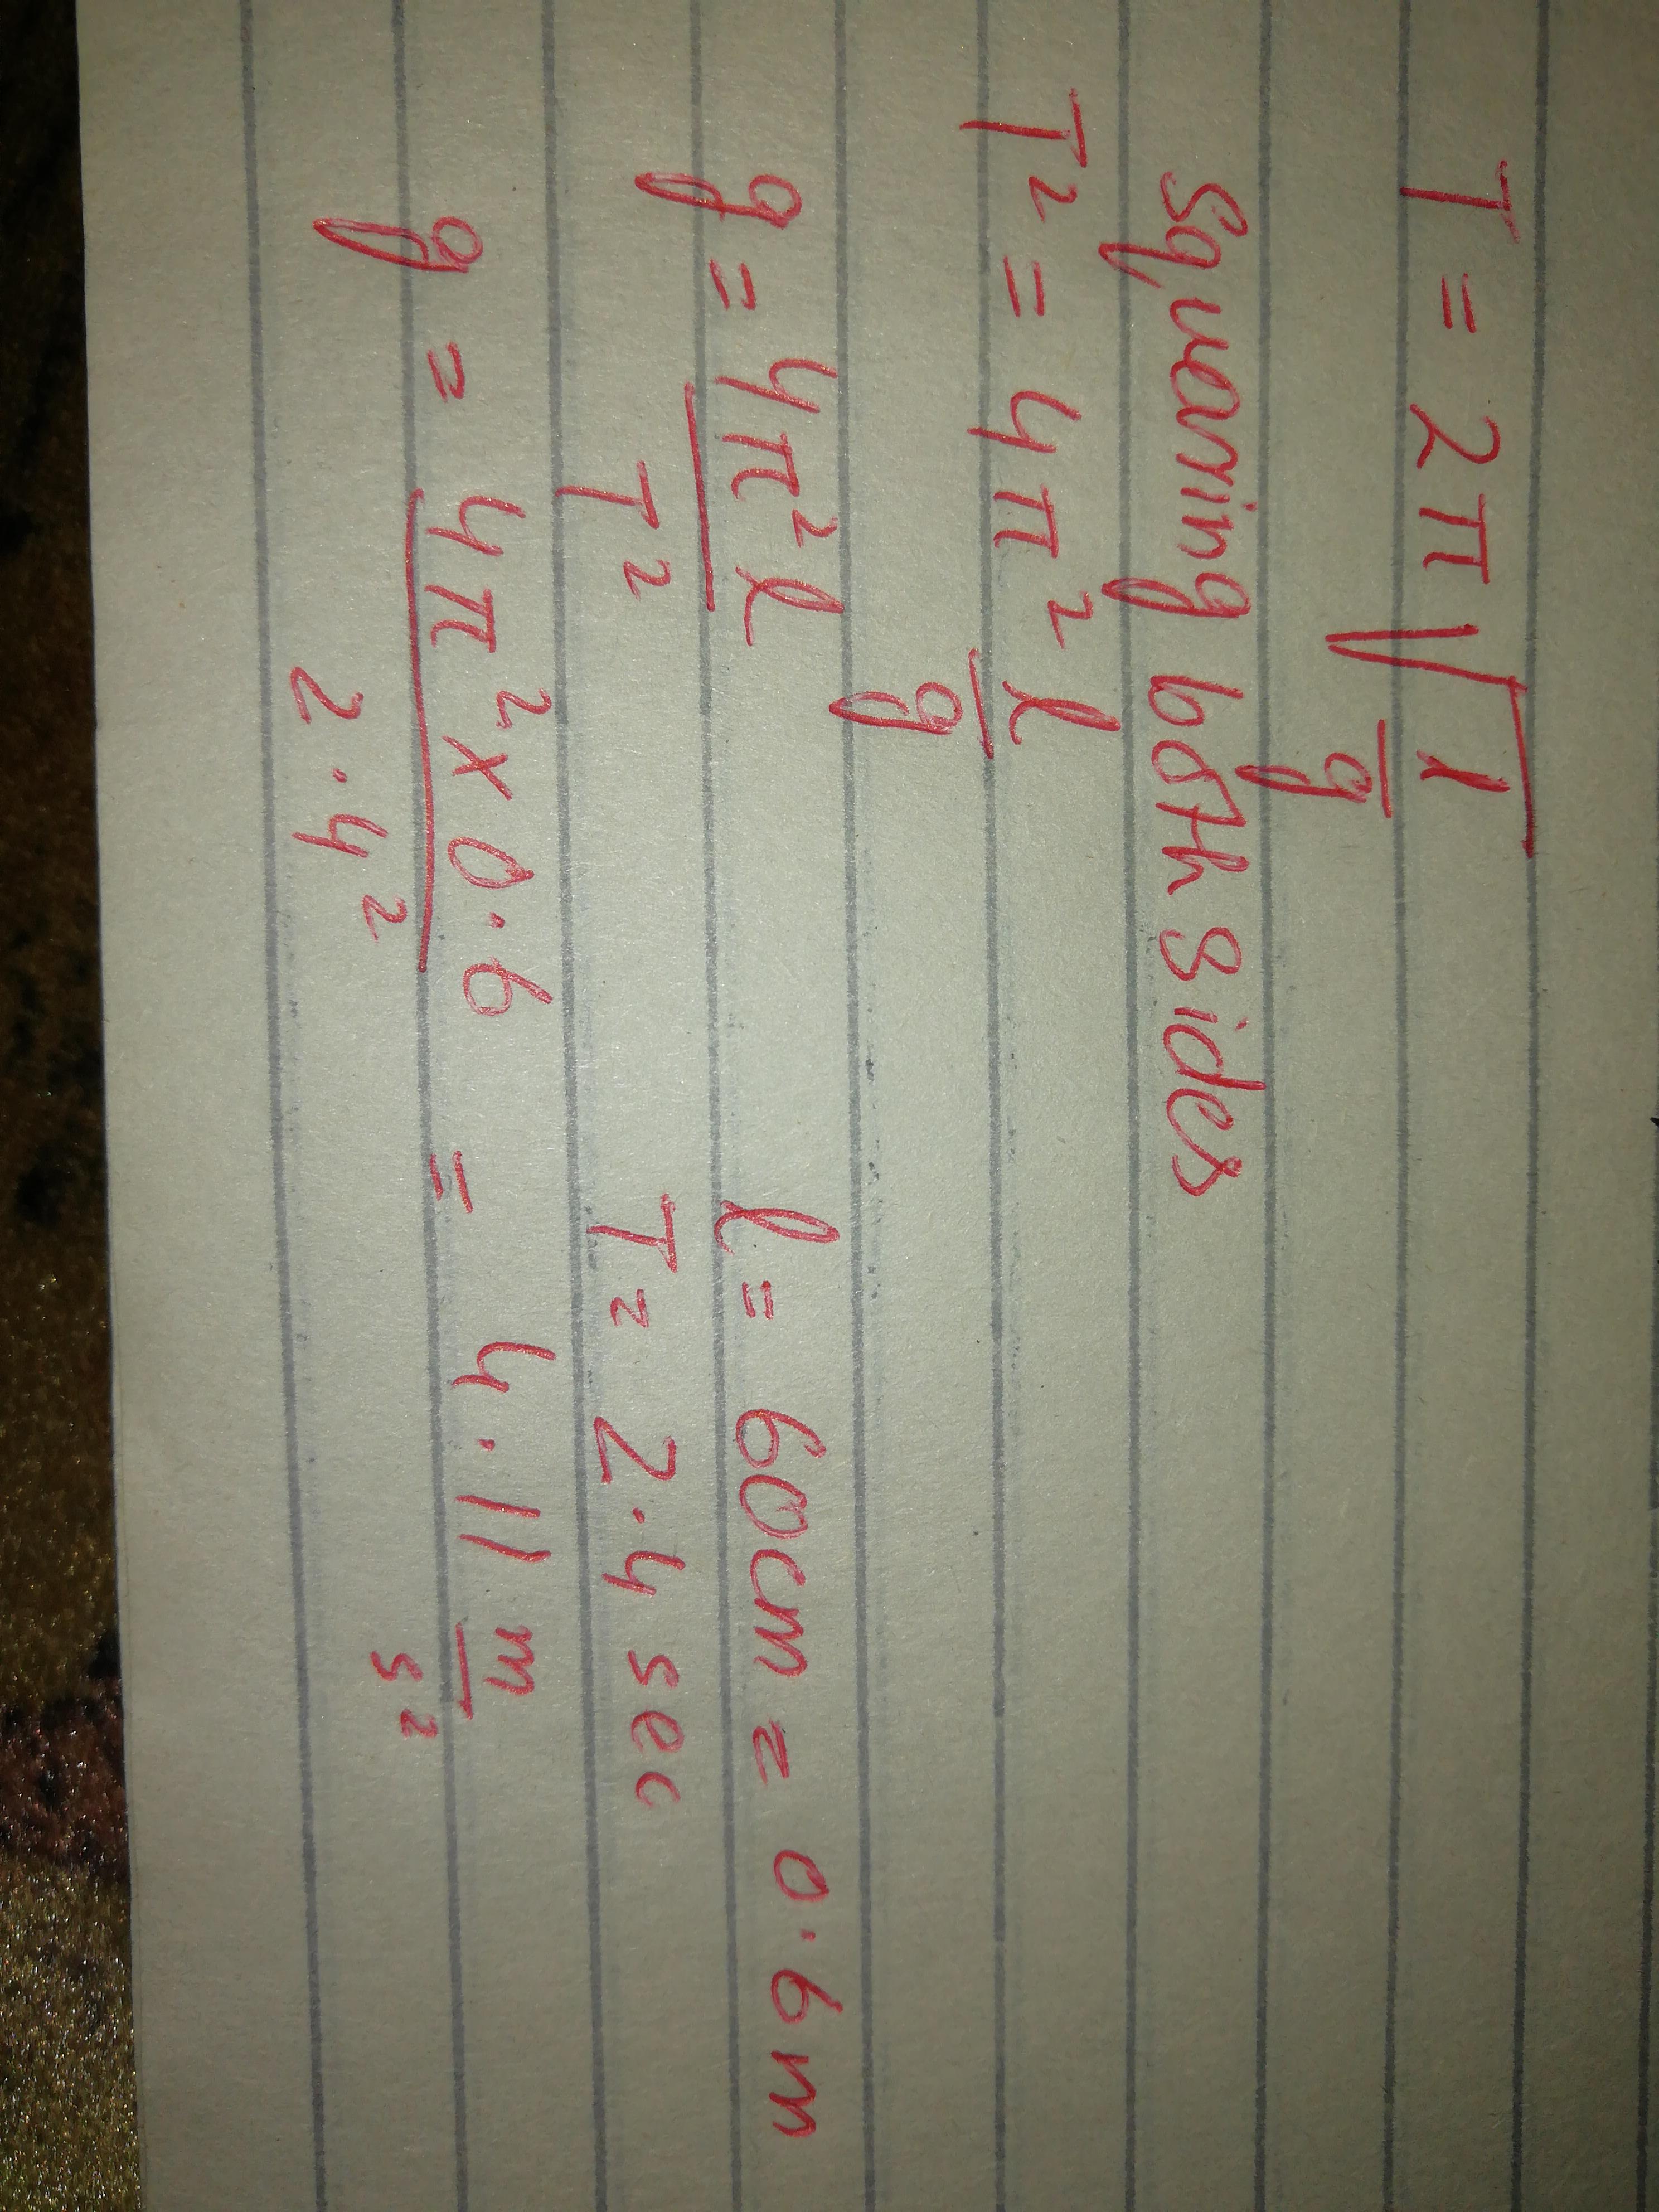 T = 2π √l/g
Squaring both sides
T² = 4π² l/g
g = 4π²l/T²   l = 60cm = 0.6m
T = 2.4 sec
g = 4π² x 0.6/2.4² = 4.11 m/s²